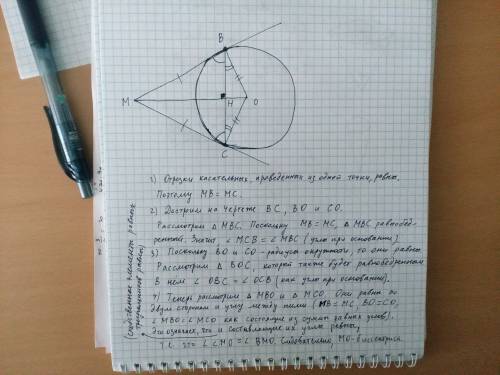 B
M
H
O
C
1) Отрезки касательных, проведенных из одной точки, равны.
Поэтому MB = MC.
2) Достроим на чертеже BC, BO и CO.
Рассмотрим △ MBC. Поскольку MB = MC, △ MBC равнобед-
ренный. Значит ∠ MCB = ∠ MBC (углы при основании)
3) Поскольку BO и CO - радиусы окружности, то они равны.
Рассмотрим △ BOC, который также будет равнобедренным
В нем ∠ OBC = ∠ OCB (как углы при основании).
4) Теперь рассмотрим △ MBO и △ MCO. Они равны по
двум сторонам и углу между ними (MB = MC, BO = CO,
∠ MBO = ∠ MCO как состоящие из суммы равных углов).
Это означает, что и составляющие их углы равны,
т.е. ∠ CMO = ∠ BMO. Следовательно, MO - биссектриса
(соответственные элементы равных
треугольников равны)